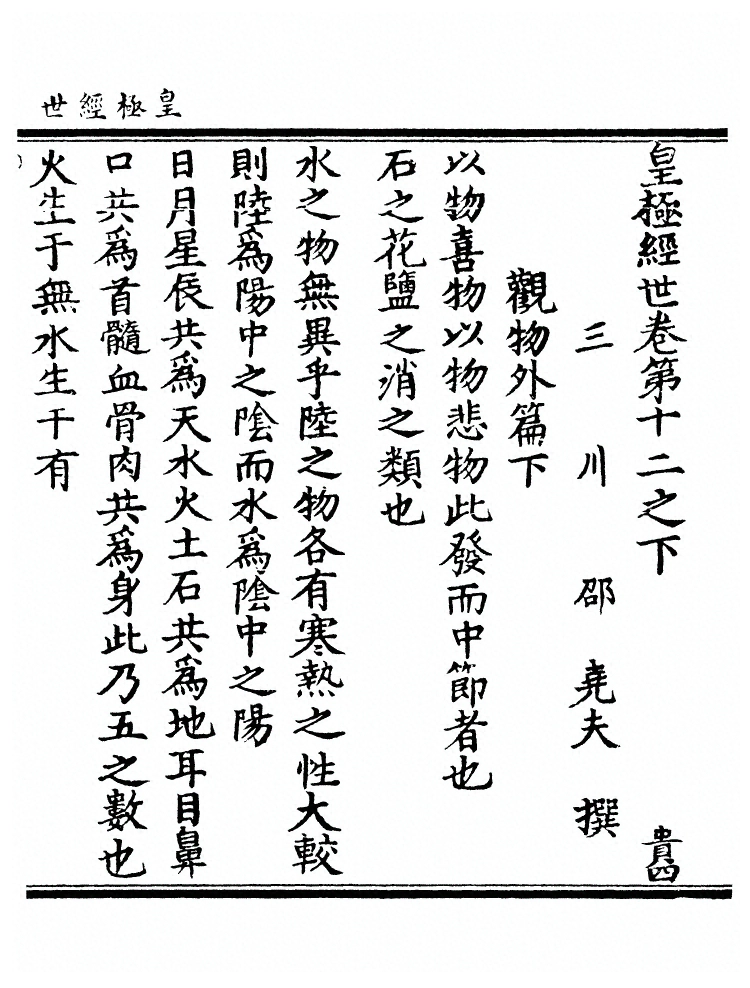 皇極經世
皇極經世卷第十二之下 貴四
三川邵堯夫撰
觀物外篇下
以物喜物以物悲物此發而中節者也
石之花鹽之消之類也
水之物無異乎陸之物各有寒熱之性大較
則陸為陽中之陰而水為陰中之陽
日月星辰共為天水火土石共為地耳目鼻
口共為首髓血骨肉共為身此乃五之數也
火生于無水生于有